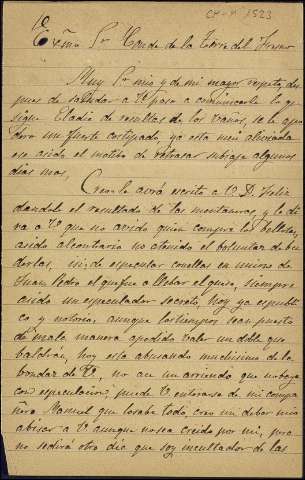 CH-M 1523
Exmo Sr Conde de la Torre del Fresno
Muy Sr mio y de mi mayor respeto, des
pues de saludar a V. paso a comunicarle lo q
sigue Eladio de resultas de los vaños, se le apo
dero un fuerte costipado, ya esta mui aliviada
eso asido el motibo de retrasar su biaje algunos
dias mas,
Creo le avrá escrito a V. D. Feliz
dandole el resultado de las montaneras, y le di
ra a V. que no avido quien compre las bellotas,
asido al contrario no atenido el boluntar de ben
derlas, ni de especular con ellas en union de
Juan Pedro el que fue a llebar el queso, siempre
asido un especulador secreto, hoy ya es publi
co y notorio, aunque los tiempos sean puesto
de mala manera apodido valer un doble que
baldran, hoy esta abusando muchisimo de la
bondaz de V., no au un arriendo que no baya
con especulacion, puede V. enterarse de mi compa
ñero Manuel que lo sabe todo, creo un deber mio
abisar a V. aunque no sea creido por mi, pero
no se dirá otro dia que soy incultador de las